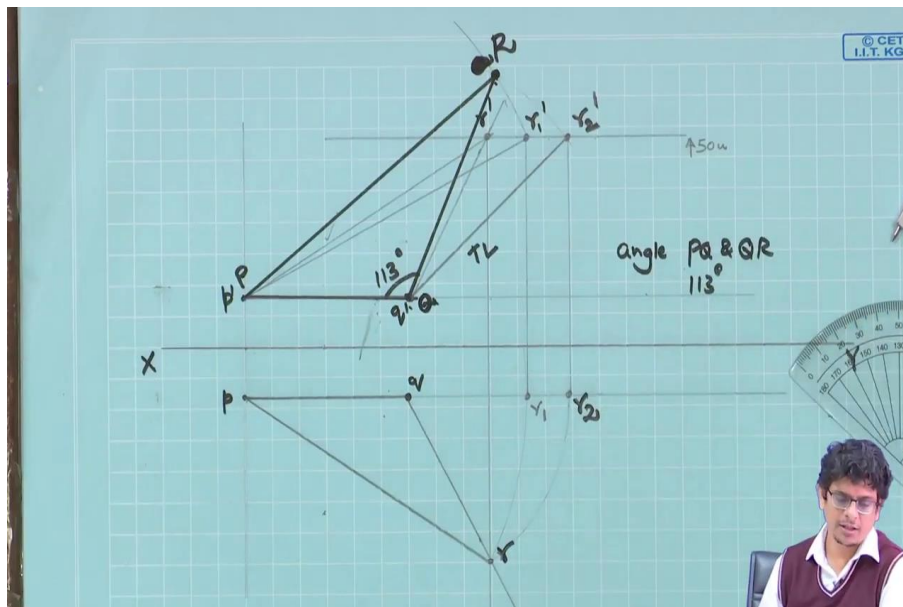 © CET
I.I.T. KG
R
r'
r₁'
r₂'
↑50u
P
p'
113°
TL
q'
Q
angle PQ & QR
113°
X
Y
p
q
r₁
r₂
r
0 10 20 30 40 50
180 170 160 150 140 130